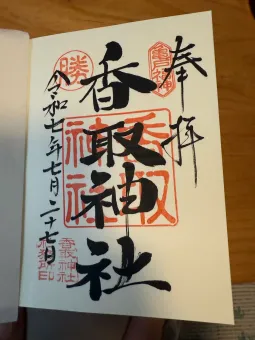 奉拝
亀戸鎮座
香取神社
香取神社
勝
令和七年七月二十七日
香取神社
社務所印